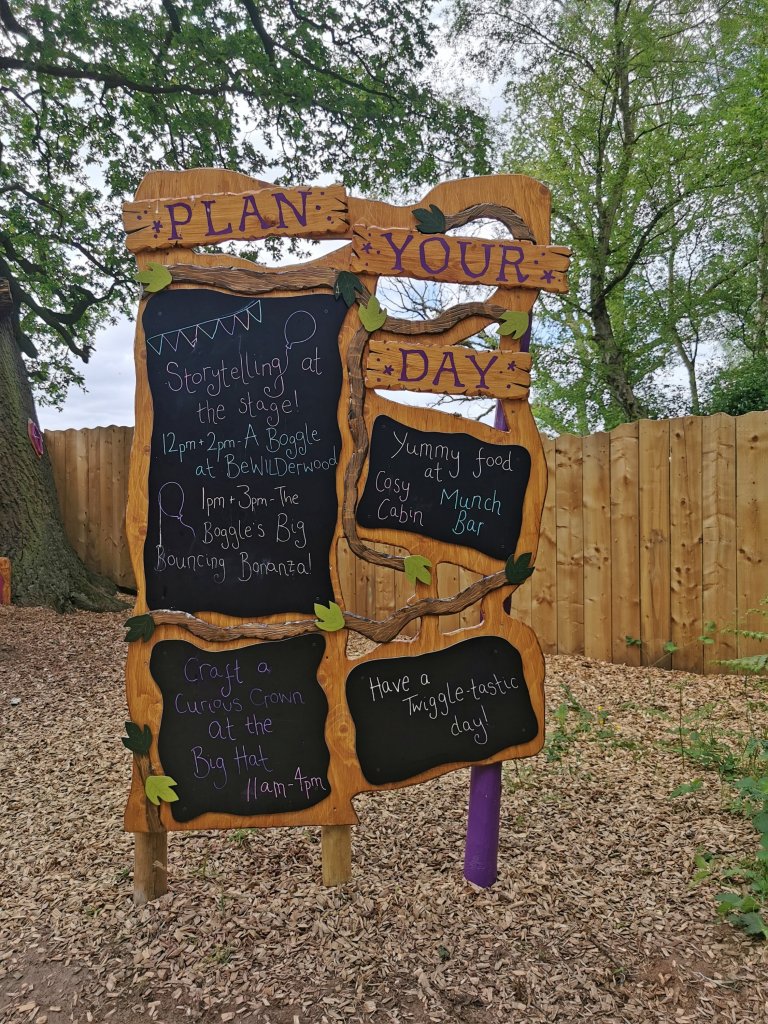 PLAN
YOUR
DAY
Storytelling at
the stage!
12pm + 2pm - A Boggle
at BeWILDerwood
1pm + 3pm - The
Boggle's Big
Bouncing Bonanza!
Yummy food
at
Cosy
Cabin
Munch
Bar
Craft a
Curious Crown
at the
Big Hat
11am - 4pm
Have a
Twiggle-tastic
day!